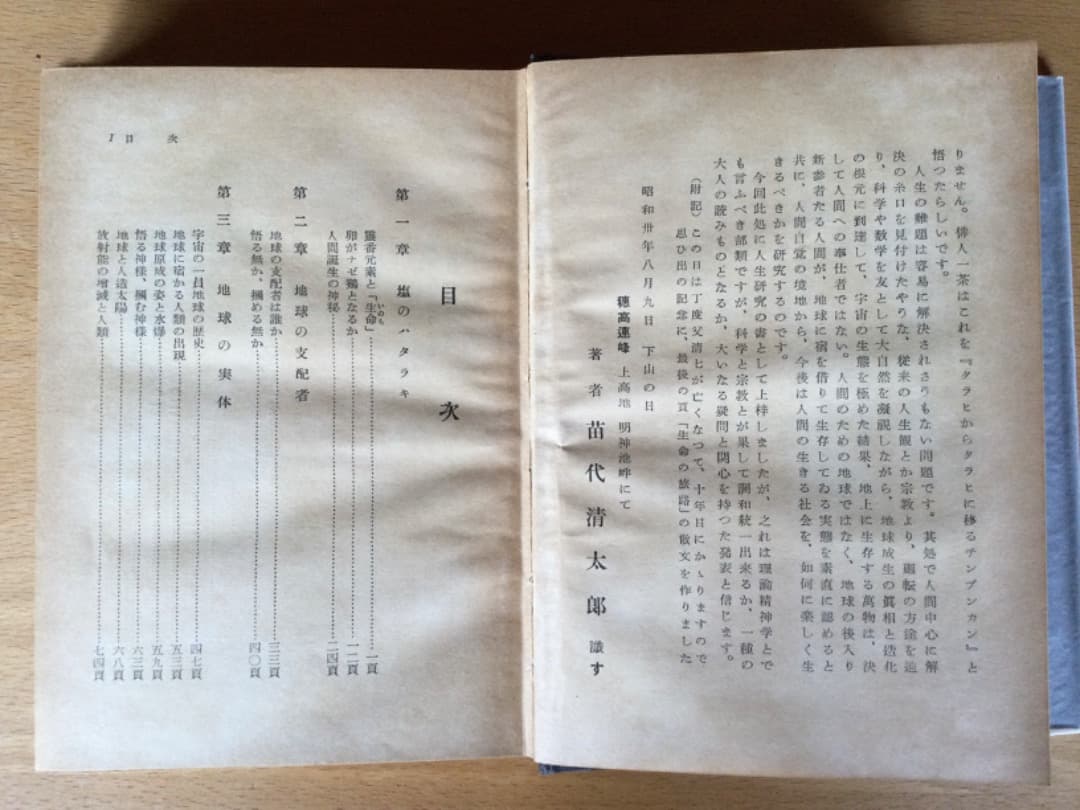 りません。俳人一茶はこれを『タラヒからタラヒに移るチンプンカン』と
悟つたらしいです。
人生の難題は容易に解決されさうもない問題です。其処で人間中心に解
決の糸口を見付けたやうな、従来の人生観とか宗教より、廻転の方途を辿
り、科学や数学を友として大自然を凝視しながら、地球成生の眞相と造化
の根元に到達して、宇宙の生態を極めた結果、地上に生存する萬物は、決
して人間への奉仕者ではない。人間のための地球ではなく、地球の後入り
新参者たる人間が、地球に宿を借りて生存してゐる実態を素直に認めると
共に、人間自覚の境地から、今後は人間の生きる社会を、如何に楽しく生
きるべきかを研究するのです。
今回此処に人生研究の書として上梓しましたが、之れは理論精神学とで
も言ふべき部類ですが、科学と宗教とが果して調和統一出来るか、一種の
大人の読みものとなるか、大いなる疑問と関心を持つた発表と信じます。
(附記) この日は丁度父清七が亡くなつて、十年目にかゝりますので
思ひ出の記念に、最後の頁「生命の旅路」の散文を作りました
昭和卅年八月九日 下山の日
穗高連峰 上高地 明神池畔にて
著者 苗代清太郎 識す
目次
第一章 塩のハタラキ
元素と「生命」 一頁
いのち
卵がナゼ鶏となるか 一二頁
人間誕生の神秘 二四頁
第二章 地球の支配者
地球の支配者は誰か 三三頁
悟る無か、摑める無か 四〇頁
第三章 地球の実体
宇宙の一員地球の歴史 四七頁
地球に宿かる人類の出現 五三頁
地球原成の姿と水爆 五九頁
悟る神様、摑む神様 六三頁
地球と人造太陽 六八頁
放射能の増減と人類 七四頁
1 目次